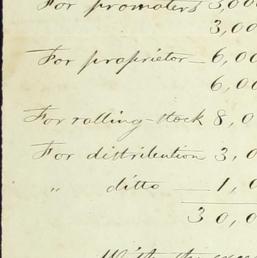 For promoters 3,000
3,00
For proprietor 6,00
6,00
For rolling-stock 8,0
For distribution 3,0
" ditto — 1,0
30,0
With the